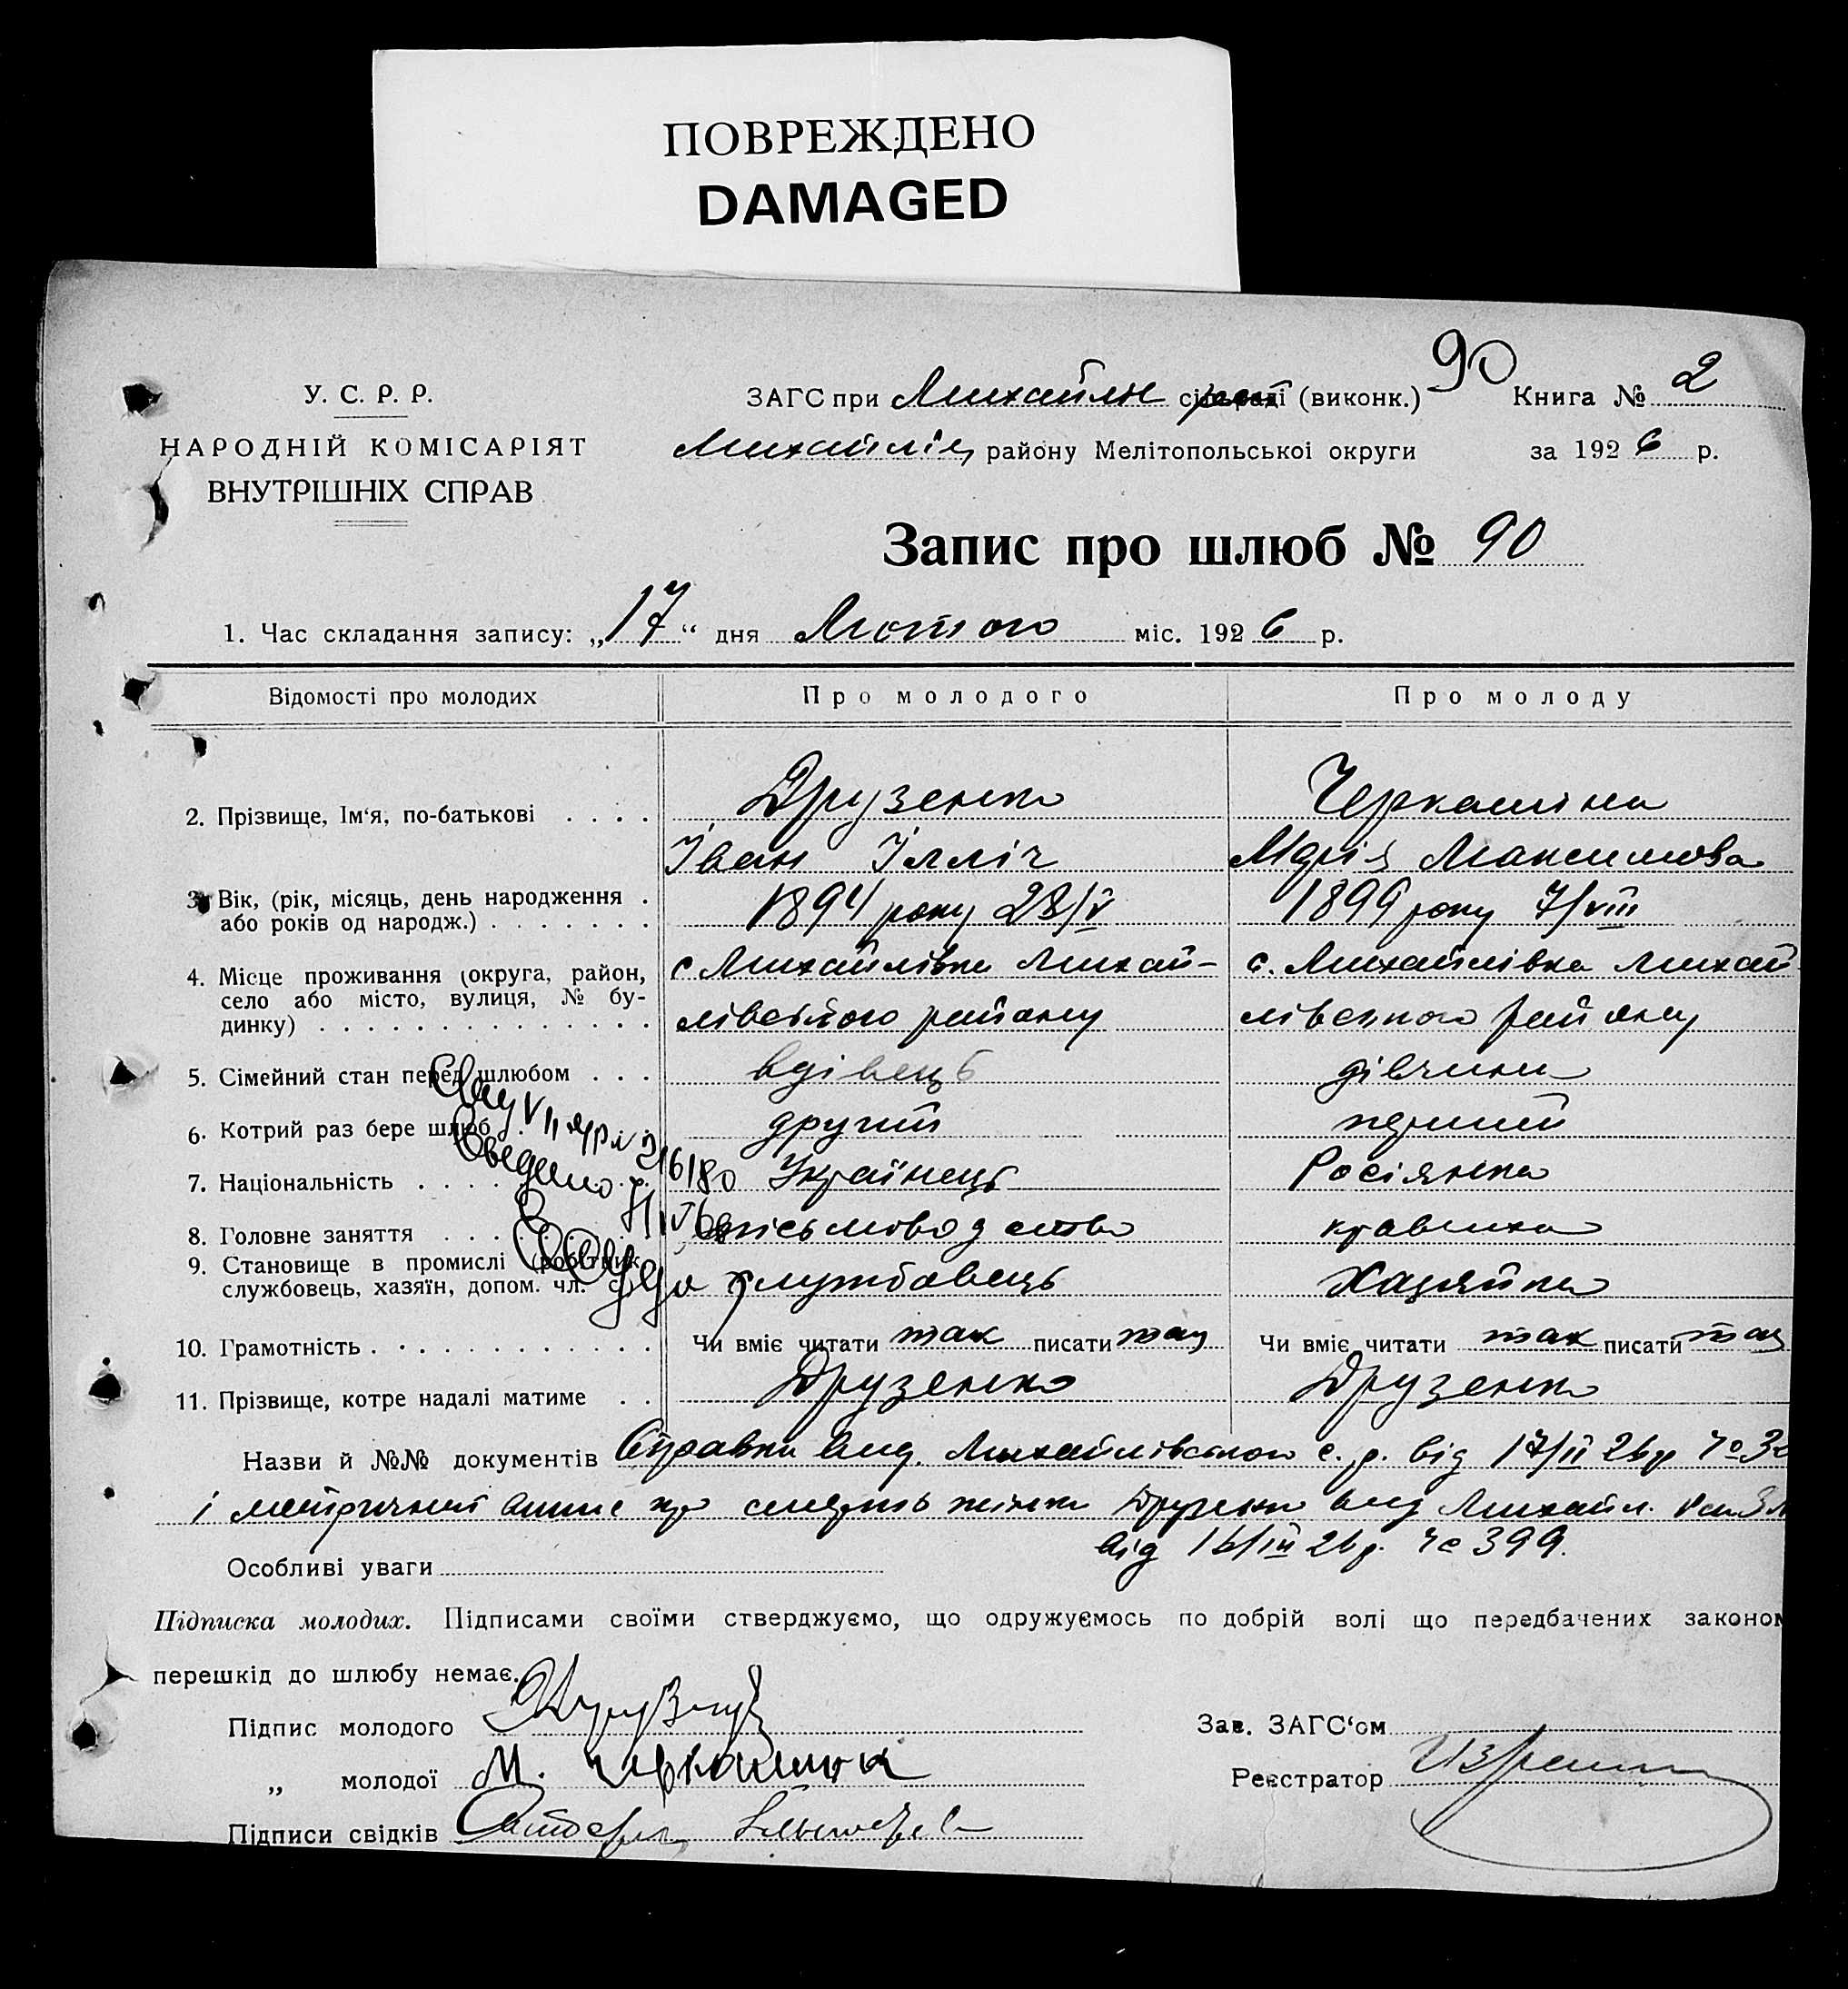 ПОВРЕЖДЕНО
DAMAGED
90
У. С. Р. Р.
НАРОДНІЙ КОМІСАРІЯТ
ВНУТРІШНІХ СПРАВ
ЗАГС при Михайлів (виконк.) Книга № 2
Михайлів району Мелітопольської округи за 1926 р.
Запис про шлюб № 90
1. Час складання запису: „17“ дня Лютого міс. 1926 р.
Відомості про молодих Про молодого Про молоду
2. Прізвище, Ім‘я, по-батькові . . . . Друзенко Черкашіна
Іван Ілліч Марія Максимова
3. Вік, (рік, місяць, день народження . 1894 року 28/V 1899 року 7/VIII
або років од народж.) . . . . . . .
4. Місце проживання (округа, район, с Михайлівка Михай- с. Михайлівка Михай
село або місто, вулиця, № бу-
динку) . . . . . . . . . . . . . . лівського району лівського району
5. Сімейний стан перед шлюбом . . . вдівець дівчина
6. Котрий раз бере шлюб другий перший
7. Національність Українець Росіянка
8. Головне заняття письмоводство кравчиха
9. Становище в промислі (робітник,
службовець, хазяїн, допом. чл. службовець Хазяйка
10. Грамотність . . . . . . . . . . . . Чи вміє читати так писати так Чи вміє читати так писати так
11. Прізвище, котре надалі матиме . . Друзенко Друзенко
Назви й №№ документів Справка вид. Михайлівською с. р. від 17/II 26 р
і метричний випис про смерть жінки Друзенко вид Михайл.
від 16/III 26 р. 399.
Особливі уваги
Підписка молодих. Підписами своїми стверджуємо, що одружуємось по добрій волі що передбачених законом
перешкід до шлюбу немає.
Підпис молодого Зав. ЗАГС‘ом
„ молодої М. Черкашина Реєстратор
Підписи свідків